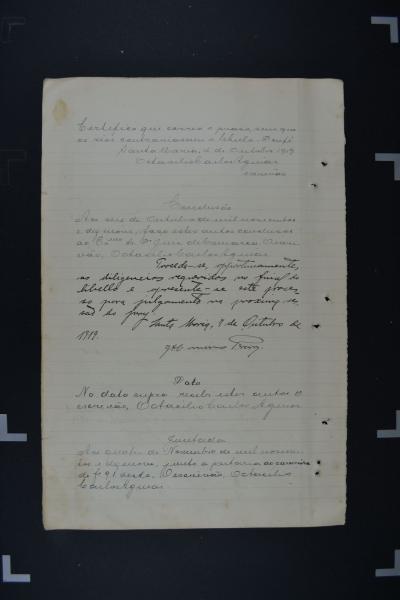 Certifico que correu o prazo, sem que
os réos contrariassem o libello. Dou fé
Santa Maria, 4 de Outubro 1919
Octacilio Carlos Aguiar
escrivão
Conclusão
Aos seis de Outubro de mil novecentos
e dezenove, faço estes autos conclusos
ao Exmo Sr. Dr. Juiz da Comarca. O escri-
vão, Octacilio Carlos Aguiar
Proceda-se, opportunamente,
as diligencias requeridas no final do
libello e apresente-se este proces-
so para julgamento na proxima ses-
são do jury.
Santa Maria, 8 de Outubro de
1919.
Data
Na data supra recebi estes autos O
escrivão, Octacilio Carlos Aguiar
Juntada
Aos quatro de Novembro de mil novecen-
tos e dezenove, junto a portaria
de f. 91 deste. O escrivão, Octacilio
Carlos Aguiar.